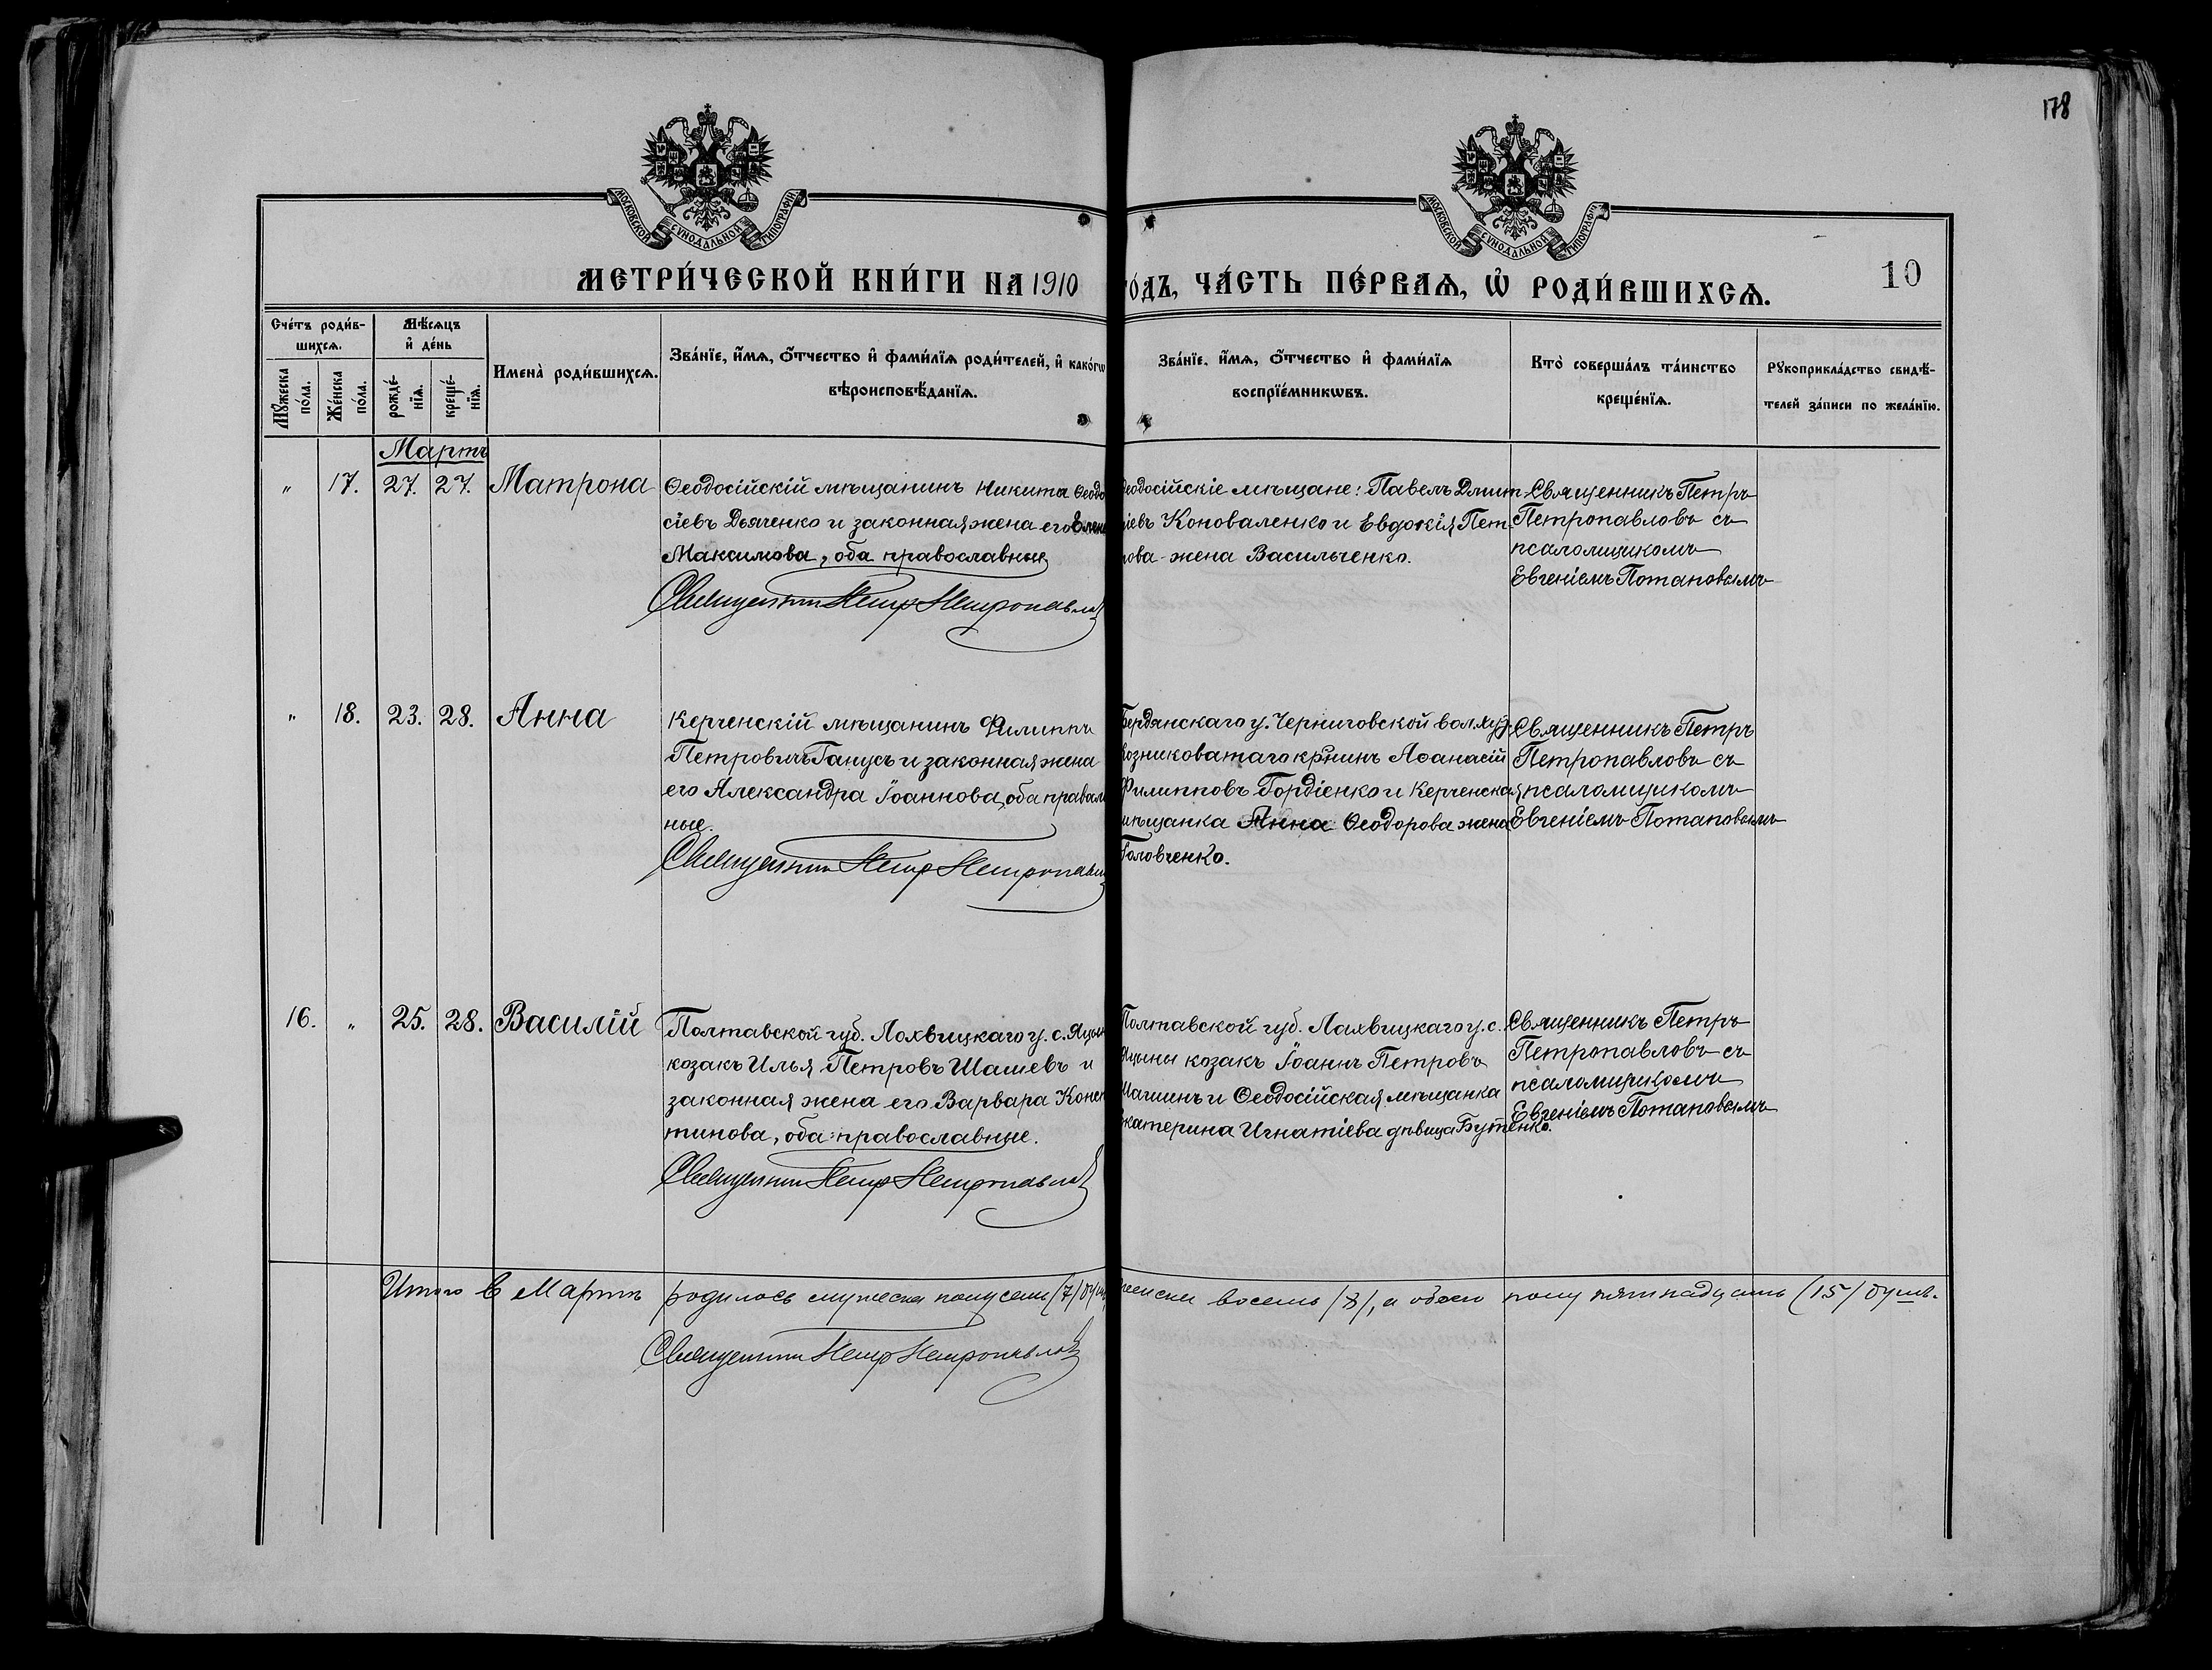 178
МОСКОВСКОЙ СѴНОДАЛЬНОЙ ТИПОГРАФІИ
МОСКОВСКОЙ СѴНОДАЛЬНОЙ ТИПОГРАФІИ
МЕТРИ́ЧЕСКОЙ КНИ́ГИ НА 1910
ГО́ДЪ, ЧА́СТЬ ПЕ́РВАѦ, Ѡ҆ РОДИ́ВШИХСѦ.
10
Сче́тъ роди́в-
шихсѧ.
Мѣ́сѧцъ
и҆ де́нь
Мꙋ́жеска по́ла.
Же́нска по́ла.
рожде́-нїѧ.
креще́-нїѧ.
Имена̀ роди́вшихсѧ.
Зва́нїе, и҆́мѧ, ѻ҆́тчество и҆ фами́лїѧ роди́телей, и҆ како́гѡ
вѣроисповѣ́данїѧ.
Зва́нїе, и҆́мѧ, ѻ҆́тчество и҆ фами́лїѧ
воспрїе́мникѡвъ.
Кто̀ соверша́лъ та́инство
креще́нїѧ.
Рꙋкоприкла́дство свидѣ́-
телей за́писи по жела́нїю.
Мартъ
" 17. 27. 27. Матрона
Ѳеодосійскій мѣщанинъ Никита Ѳеодо
сіевъ Дьяченко и законная жена его Елена
Максимова, оба православные
Священникъ Петръ Петропавловъ
Ѳеодосійскіе мѣщане: Павелъ Дмит-
ріевъ Коноваленко и Евдокія Пет-
рова жена Васильченко.
Священникъ Петръ
Петропавловъ съ
псаломщикомъ
Евгеніемъ Потаповымъ
" 18. 23. 28. Анна
Керченскій мѣщанинъ Филиппъ
Петровичъ Ганусъ и законная жена
его Александра Іоаннова, оба правосла
ные.
Священникъ Петръ Петропавловъ
Бердянскаго у. Черниговской вол.
козниковатаго кр-нинъ Аѳанасій
Филипповъ Гордіенко и Керченская
мѣщанка Анна Ѳеодорова жена
Головченко.
Священникъ Петръ
Петропавловъ съ
псаломщикомъ
Евгеніемъ Потаповымъ
16. " 25. 28. Василій
Полтавской губ. Лохвицкаго у. с. Яцын
козакъ Илья Петровъ Шашевъ и
законная жена его Варвара Конст
тинова, оба православные.
Священникъ Петръ Петропавловъ
Полтавской губ. Лахвицкаго у. с.
Яцыны козакъ Іоаннъ Петровъ
Шашинъ и Ѳеодосійская мѣщанка
Екатерина Игнатіева дѣвица Бутенко.
Священникъ Петръ
Петропавловъ съ
псаломщикомъ
Евгеніемъ Потаповымъ
Итого в Мартѣ родилось мужеска полу семь (7) душ, женски восемь (8), а обоего полу пятнадцать (15) душъ.
Священникъ Петръ Петропавловъ